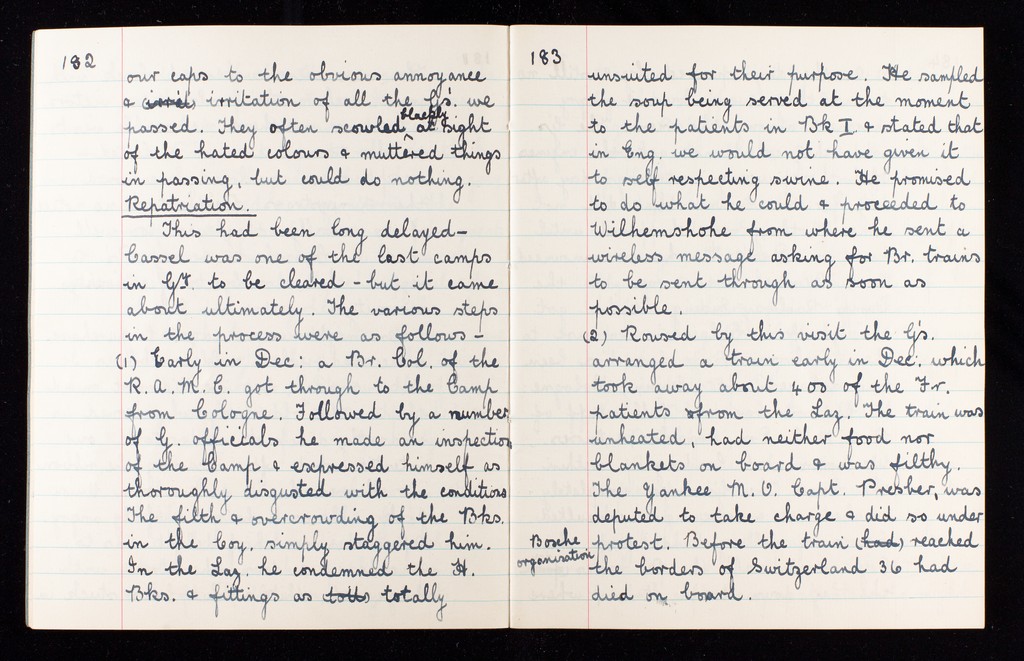 182
our caps to the obvious annoyance
& (irrit) irritation of all the G's. we
passed. They often scowled blackly at sight
of the hated colours & muttered things
in passing, but could do nothing.
Repatriation.
This had been long delayed -
Cassel was one of the last camps
in GY. to be cleared - but it came
about ultimately. The various steps
in the process were as follows -
(1) Early in Dec: a Br. Col. of the
R.A.M.C. got through to the Camp
from Cologne. Followed by a number
of G. officials he made an inspection
of the Camp & expressed himself as
thoroughly disgusted with the conditions
The filth & overcrowding of the Bks.
in the Coy. simply staggered him.
In the Laz. he condemned the H.
Bks. & fittings as totls totally
183
unsuited for their purpose. He sampled
the soup being served at the moment
to the patients in Bk I. & stated that
in Eng. we would not have given it
to self respecting swine. He promised
to do what he could & proceeded to
Wilhemshohe from where he sent a
wireless message asking for Br. trains
to be sent through as soon as
possible.
(2) Roused by this visit the G's.
arranged a train early in Dec. which
took away about 400 of the Fr.
patients from the Laz. The train was
unheated, had neither food nor
blankets on board & was filthy.
The Yankee M.O. Capt. Presber, was
deputed to take charge & did so under
protest. Before the train (had) reached
Bosche
organisation
the borders of Switzerland 36 had
died on board.